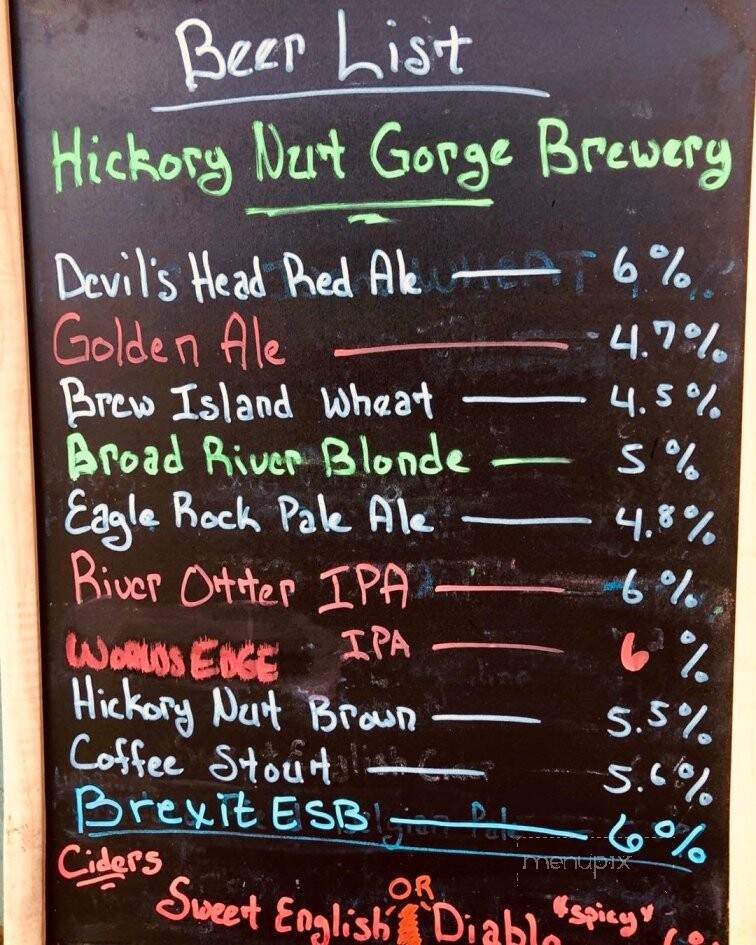 Beer List
Hickory Nut Gorge Brewery
Devil's Head Red Ale — 6%
Golden Ale — 4.7%
Brew Island Wheat — 4.5%
Broad River Blonde — 5%
Eagle Rock Pale Ale — 4.8%
River Otter IPA — 6%
WORLDS EDGE IPA — 6%
Hickory Nut Brown — 5.5%
Coffee Stout — 5.6%
Brexit ESB — 6%
menupix
Ciders
OR
Sweet English Diablo "spicy"